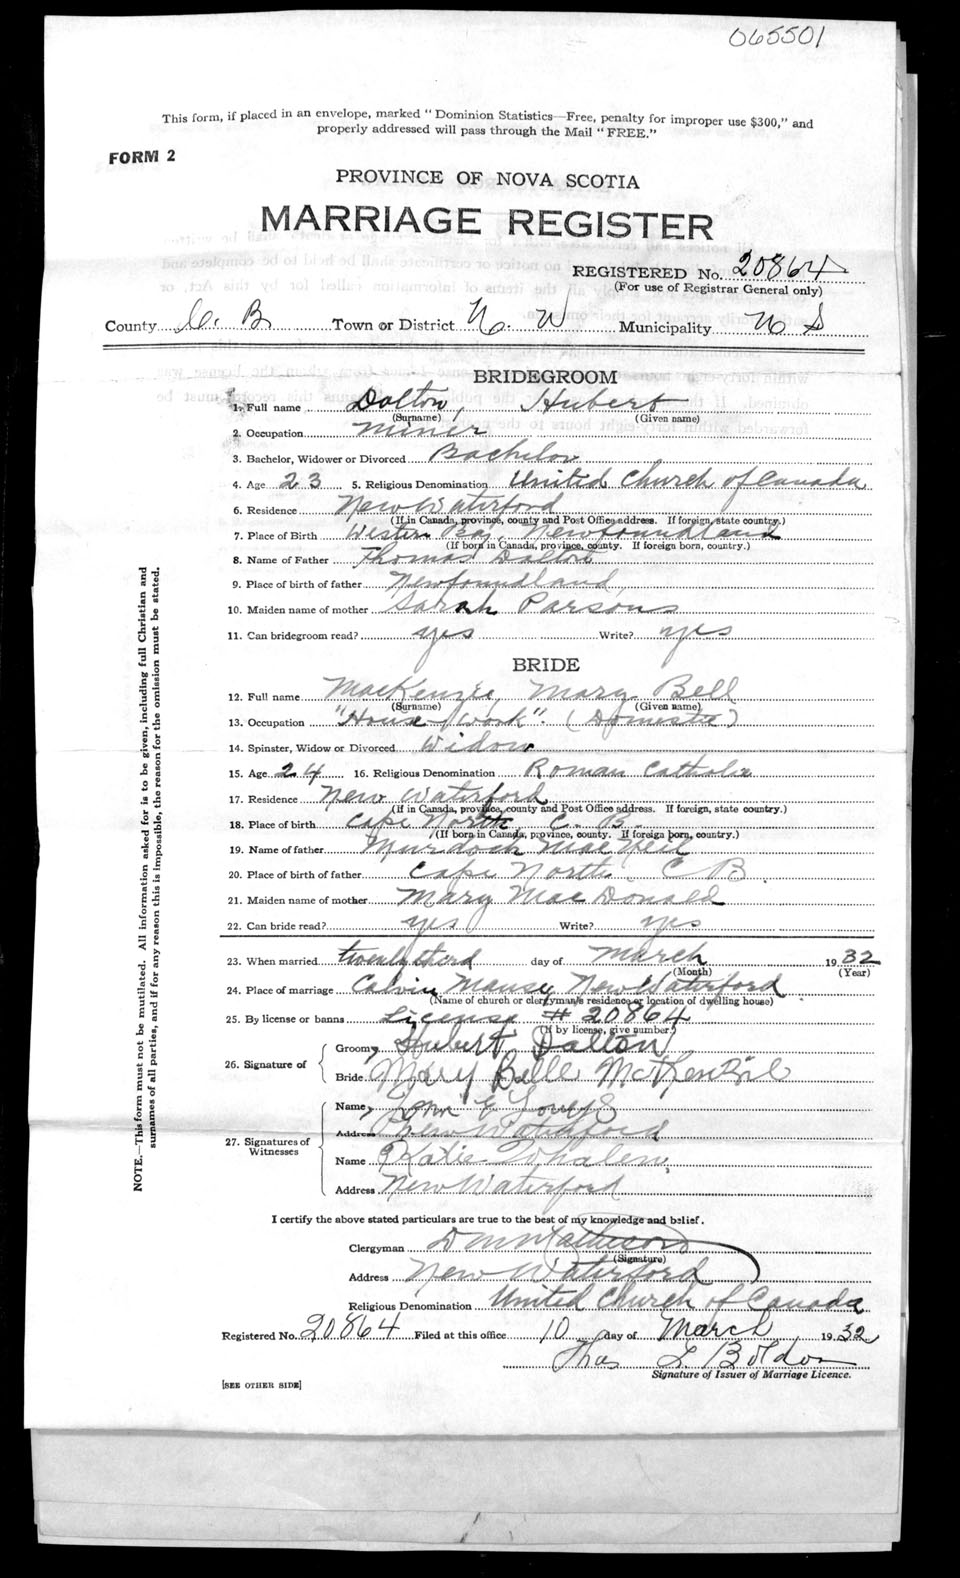 065501
This form, if placed in an envelope, marked "Dominion Statistics—Free, penalty for improper use $300," and
properly addressed will pass through the Mail "FREE."
FORM 2
PROVINCE OF NOVA SCOTIA
MARRIAGE REGISTER
REGISTERED No. 20864
(For use of Registrar General only)
County C. B. Town or District N. W Municipality N S
BRIDEGROOM
1. Full name Dalton, Hubert
(Surname) (Given name)
2. Occupation miner
3. Bachelor, Widower or Divorced Bachelor
4. Age 23 5. Religious Denomination United Church of Canada
6. Residence New Waterford
(If in Canada, province, county and Post Office address. If foreign, state country.)
7. Place of Birth Western Bay, Newfoundland
(If born in Canada, province, county. If foreign born, country.)
8. Name of Father Thomas Dalton
9. Place of birth of father Newfoundland
10. Maiden name of mother Sarah Parsons
11. Can bridegroom read? yes Write? yes
BRIDE
12. Full name MacKenzie, Mary Bell
(Surname) (Given name)
13. Occupation "House-Work". (Domestic)
14. Spinster, Widow or Divorced Widow
15. Age 24 16. Religious Denomination Roman Catholic
17. Residence New Waterford
(If in Canada, province, county and Post Office address. If foreign, state country.)
18. Place of birth Cape North C. B.
(If born in Canada, province, county. If foreign born, country.)
19. Name of father Murdoch MacNeil
20. Place of birth of father Cape North C B.
21. Maiden name of mother Mary MacDonald
22. Can bride read? yes Write? yes
23. When married twenty third day of March 1932
(Month) (Year)
24. Place of marriage Calvin Manse, New Waterford
(Name of church or clergyman's residence or location of dwelling house)
25. By license or banns License # 20864
(If by license, give number)
26. Signature of
Groom Hubert Dalton
Bride Mary Belle McKenzie
27. Signatures of
Witnesses
Name John E
Address New Waterford
Name Katie Whalen
Address New Waterford
I certify the above stated particulars are true to the best of my knowledge and belief.
Clergyman D M Matheson
(Signature)
Address New Waterford
Religious Denomination United Church of Canada
Registered No. 20864 Filed at this office 10 day of March 1932
Thos L
Signature of Issuer of Marriage Licence.
[SEE OTHER SIDE]
NOTE.—This form must not be mutilated. All information asked for is to be given, including full Christian and
surnames of all parties, and if for any reason this is impossible, the reason for the omission must be stated.